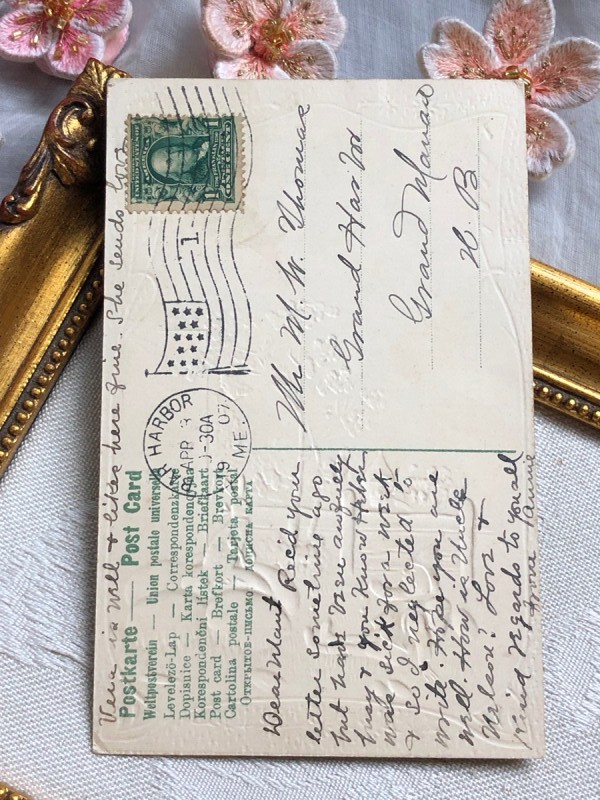 Vera is well & likes here fine. She sends love
Postkarte — Post Card
Weltpostverein — Union postale universelle
Levelező-Lap — Correspondenzkarte
Dopisnice — Karta korespondencyjna
Korespondenční lístek Briefkaart
Post card — Brefkort — Brevkort
Cartolina postale — Tarjeta postal
Открытое-письмо
UNITED STATES OF AMERICA
1
BAR HARBOR
APR 3
-30A
07
ME.
1
Mr M. W. Thomas
Grand Harbor
Grand Manan
N. B.
Dear Aunt Rec'd your
letter sometime ago
but have been awfully
busy & you know Helen
was sick for a week
& so I neglected to
write. Hope you are
well How is Uncle
Nelson? Love &
kind regards to yourself
from Fannie